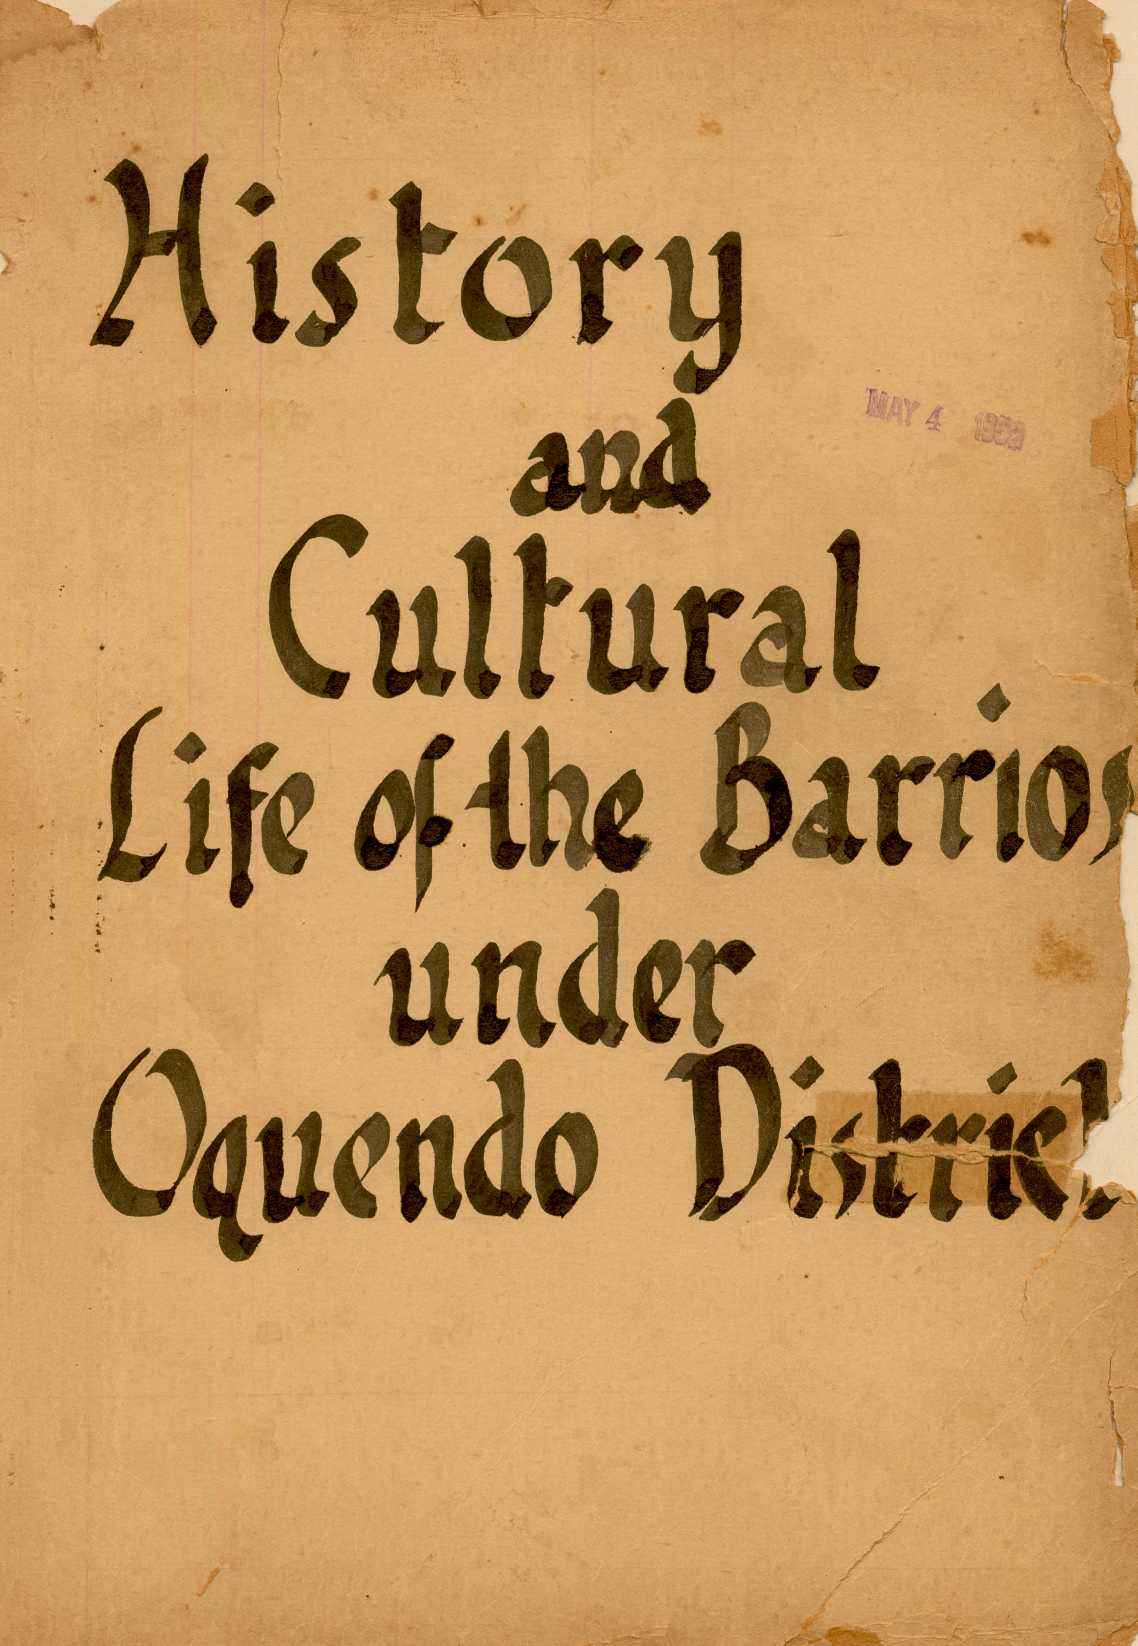 History
MAY 4 1953
and
Cultural
Life of the Barrios
under
Oquendo District